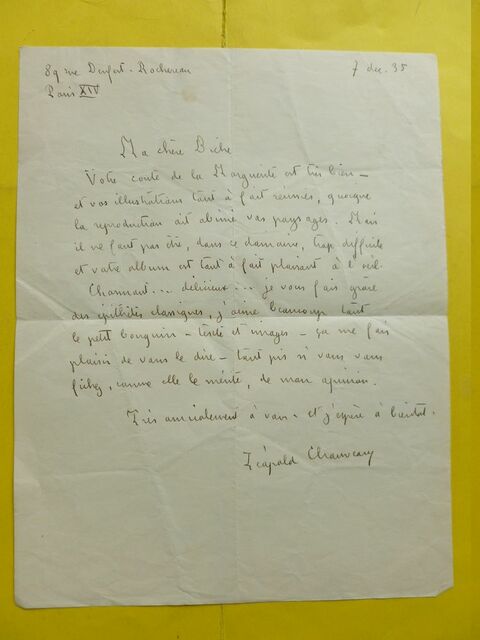 89 rue Denfert-Rochereau
7 dec. 35
Paris XIV
Ma chère Biche
Votre conte de la Marguerite est très bien -
et vos illustrations tout à fait réussies, quoique
la reproduction ait abimé vos paysages. Mais
il ne faut pas être, dans ce domaine, trop difficile
et votre album est tout à fait plaisant à l'oeil.
Charmant... délicieux... je vous fais grâce
des épithètes classiques, j'aime beaucoup tout
le petit bouquin - texte et images - ça me fait
plaisir de vous le dire - tant pis si vous vous
fichez, comme elle le mérite, de mon opinion.
Très amicalement à vous - et j'espère à bientôt.
Léopold Chauveau